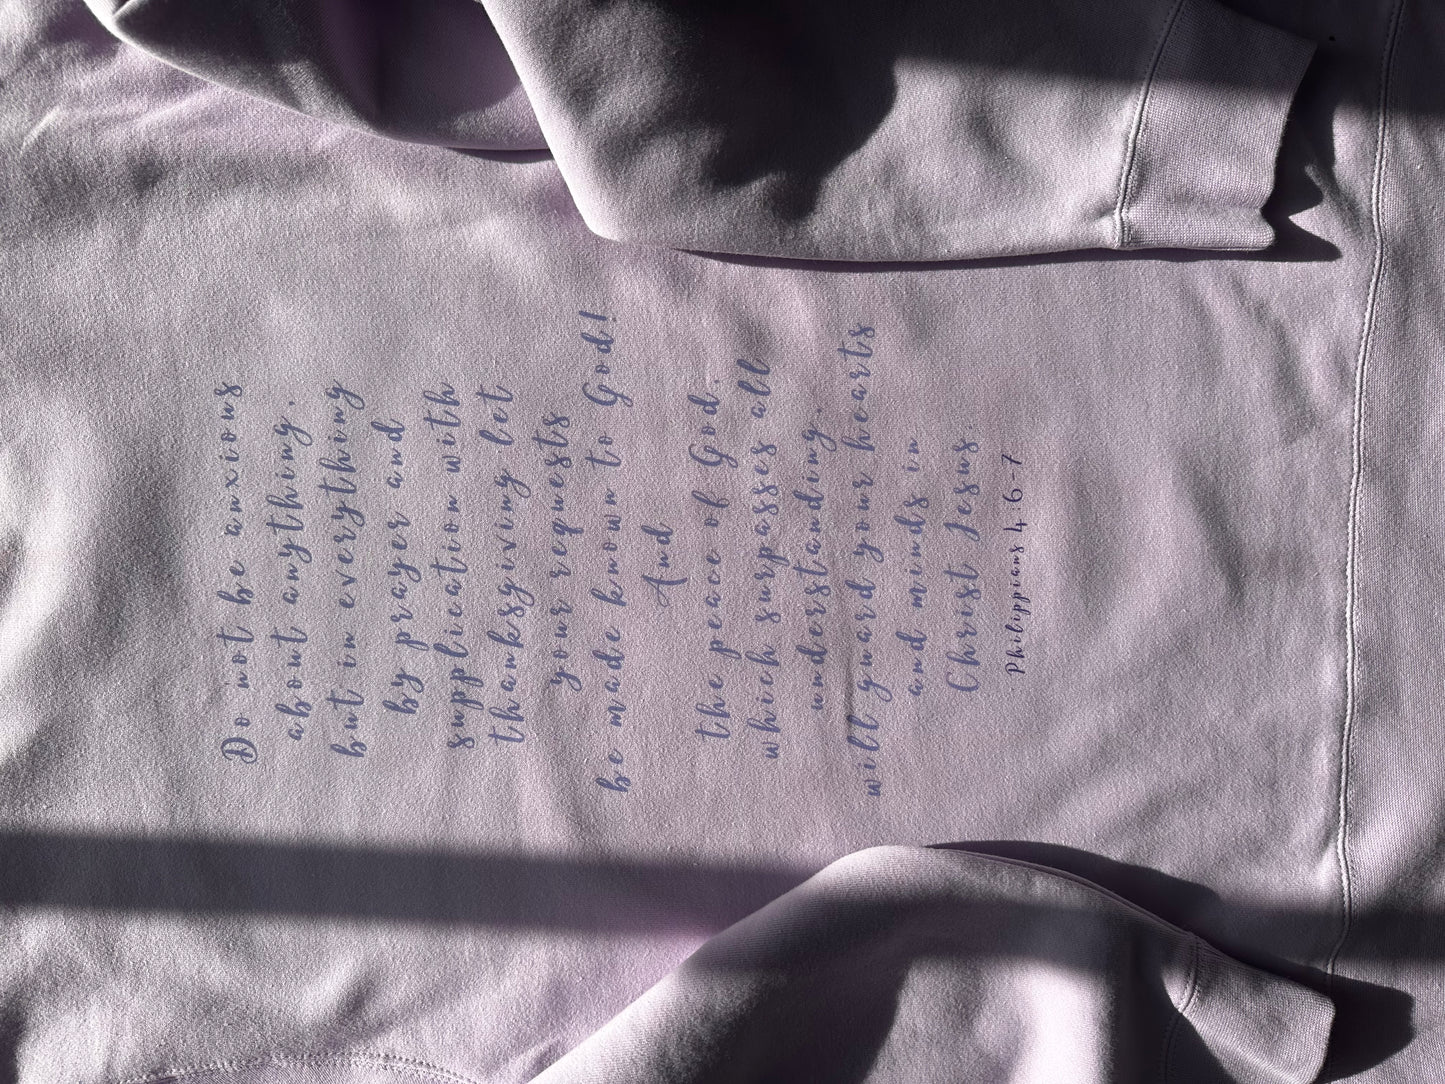 Do not be anxious
about anything.
but in everything
by prayer and
supplication with
thanksgiving let
your requests
be made known to God!
And
the peace of God.
which surpasses all
understanding.
will guard your hearts
and minds in
Christ Jesus.
Philippians 4:6-7